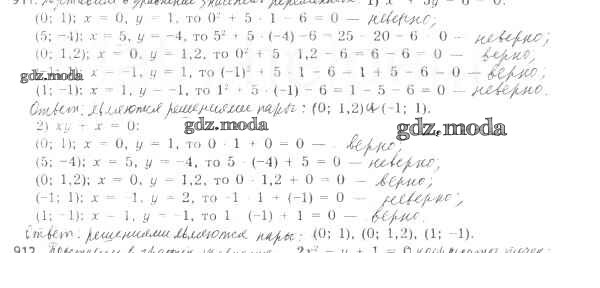 911. Подставим в уравнение значения переменных 1) x² + 5y − 6 = 0:
(0; 1); x = 0, y = 1, то 0² + 5 · 1 − 6 = 0 — неверно;
(5; −4); x = 5, y = −4, то 5² + 5 · (−4) −6 = 25 − 20 − 6 = 0 — неверно;
(0; 1,2); x = 0, y = 1,2, то 0² + 5 · 1,2 − 6 = 6 − 6 = 0 — верно;
gdz.moda 1); x = −1, y = 1, то (−1)² + 5 · 1 − 6 = 1 + 5 − 6 = 0 — верно;
(1; −1); x = 1, y = −1, то 1² + 5 · (−1) − 6 = 1 − 5 − 6 = 0 — неверно.
Ответ. являются решениями пары: (0; 1,2) и (−1; 1).
2) xy + x = 0: gdz.moda gdz.moda
(0; 1); x = 0, y = 1, то 0 · 1 + 0 = 0 — верно;
(5; −4); x = 5, y = −4, то 5 · (−4) + 5 = 0 — неверно;
(0; 1,2); x = 0, y = 1,2, то 0 · 1,2 + 0 = 0 — верно;
(−1; 1); x = −1, y = 2, то −1 · 1 + (−1) = 0 — неверно;
(1; −1); x = 1, y = −1, то 1 (−1) + 1 = 0 — верно.
Ответ. решениями являются пары: (0; 1), (0; 1,2), (1; −1).
912. 2x² − y + 1 = 0